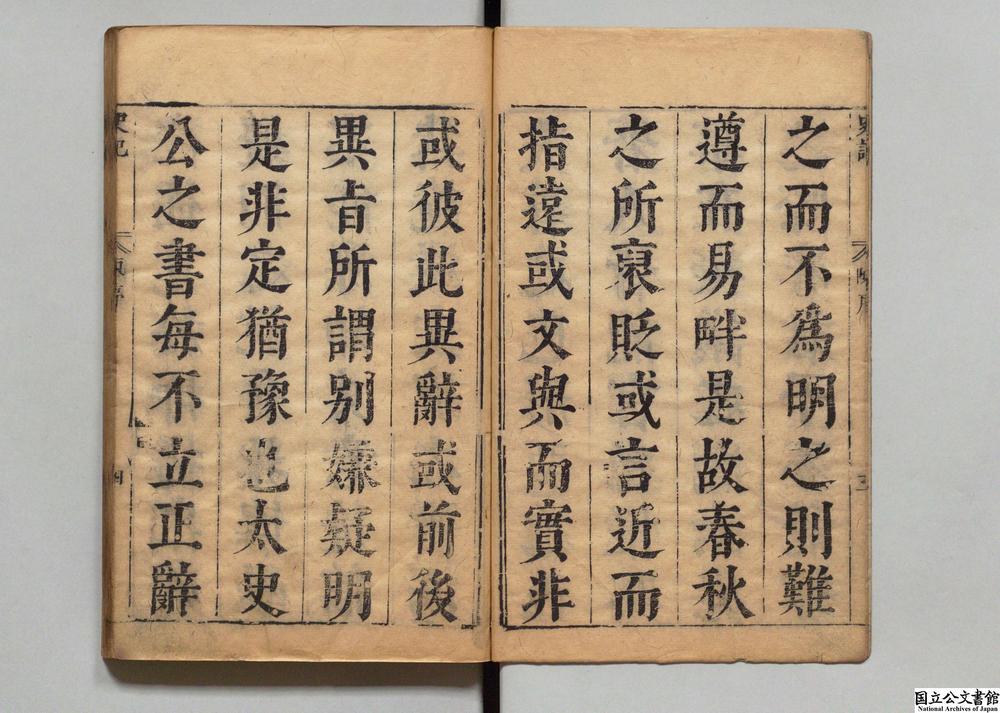 之而不爲明之則難
遵而易畔是故春秋
之所裒貶或言近而
指遠或文與而實非
或彼此異辭或前後
異旨所謂别嫌疑明
是非定猶豫也太史
公之書每不立正辭
国立公文書館
National Archives of Japan